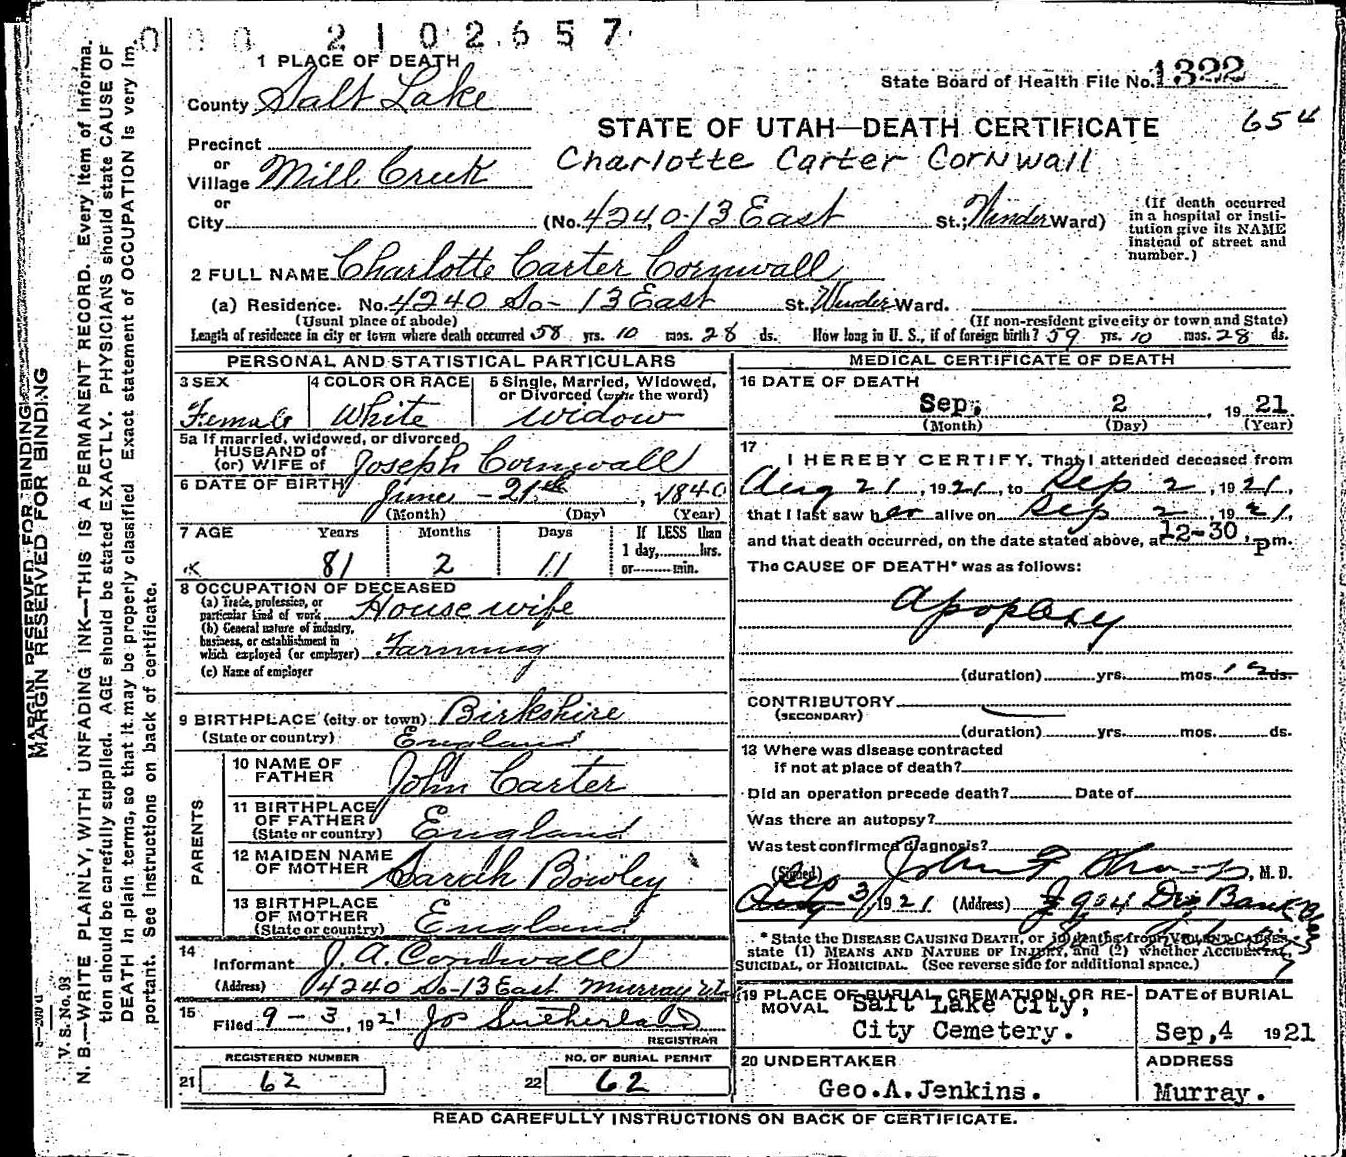 2102657
1 PLACE OF DEATH
State Board of Health File No. 1322
County Salt Lake
654
STATE OF UTAH—DEATH CERTIFICATE
Precinct
or
Village Mill Creek
Charlotte Carter Cornwall
or
City (No. 4240-13 East St.; Winder Ward)
(If death occurred in a hospital or institution give its NAME instead of street and number.)
2 FULL NAME Charlotte Carter Cornwall
(a) Residence. No. 4240 So- 13 East St. Winder Ward.
(Usual place of abode) (If non-resident give city or town and State)
Length of residence in city or town where death occurred 58 yrs. 10 mos. 28 ds. How long in U. S., if of foreign birth? 59 yrs. 10 mos. 28 ds.
PERSONAL AND STATISTICAL PARTICULARS
3 SEX
Female
4 COLOR OR RACE
White
5 Single, Married, Widowed,
or Divorced (write the word)
Widow
5a If married, widowed, or divorced
HUSBAND of
(or) WIFE of Joseph Cornwall
6 DATE OF BIRTH June - 21st, 1840
(Month) (Day) (Year)
7 AGE Years Months Days If LESS than
1 day,........hrs.
or........min.
81 2 11
8 OCCUPATION OF DECEASED
(a) Trade, profession, or
particular kind of work House wife
(b) General nature of industry,
business, or establishment in
which employed (or employer) Farming
(c) Name of employer
9 BIRTHPLACE (city or town) Birkshire
(State or country) England
PARENTS
10 NAME OF
FATHER John Carter
11 BIRTHPLACE
OF FATHER
(State or country) England
12 MAIDEN NAME
OF MOTHER Sarah Bowley
13 BIRTHPLACE
OF MOTHER
(State or country) England
14
Informant J. A. Cornwall
(Address) 4240 So-13 East Murray Ut.
15
Filed 9 - 3, 1921 Jos Sutherland
REGISTRAR
REGISTERED NUMBER
21 62
NO. OF BURIAL PERMIT
22 62
MEDICAL CERTIFICATE OF DEATH
16 DATE OF DEATH
Sep. 2, 1921
(Month) (Day) (Year)
17
I HEREBY CERTIFY, That I attended deceased from
Aug 21, 1921, to Sep 2, 1921,
that I last saw her alive on Sep 2, 1921,
and that death occurred, on the date stated above, at 12-30, Pm.
The CAUSE OF DEATH* was as follows:
Apoplexy
(duration) yrs. mos. 12 ds.
CONTRIBUTORY
(SECONDARY)
(duration) yrs. mos. ds.
18 Where was disease contracted
if not at place of death?
Did an operation precede death? Date of
Was there an autopsy?
Was test confirmed diagnosis?
(Signed) John F , M. D.
Sep 3, 1921 (Address)
* State the DISEASE CAUSING DEATH, or in deaths from VIOLENT CAUSES,
state (1) MEANS AND NATURE OF INJURY, and (2) whether ACCIDENTAL,
SUICIDAL, or HOMICIDAL. (See reverse side for additional space.)
19 PLACE OF BURIAL, CREMATION, OR REMOVAL
Salt Lake City,
City Cemetery.
DATE of BURIAL
Sep, 4 1921
20 UNDERTAKER
Geo. A. Jenkins.
ADDRESS
Murray.
READ CAREFULLY INSTRUCTIONS ON BACK OF CERTIFICATE.
MARGIN RESERVED FOR BINDING
MARGIN RESERVED FOR BINDING
V. S. No. 93
N. B.—WRITE PLAINLY, WITH UNFADING INK—THIS IS A PERMANENT RECORD. Every item of information should be carefully supplied. AGE should be stated EXACTLY. PHYSICIANS should state CAUSE OF DEATH in plain terms, so that it may be properly classified Exact statement of OCCUPATION is very important. See instructions on back of certificate.